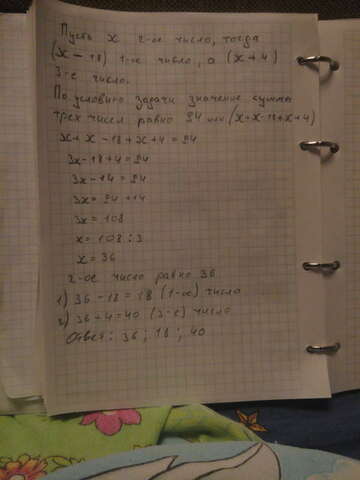 Пусть x 2-ое число, тогда
(x - 18) 1-ое число, а (x + 4)
3-е число.
По условию задачи значение суммы
трех чисел равно 94 или (x+x-18+x+4)
x + x - 18 + x + 4 = 94
3x - 18 + 4 = 94
3x - 14 = 94
3x = 94 + 14
3x = 108
x = 108 : 3
x = 36
2-ое число равно 36
1) 36 - 18 = 18 (1-ое) число
2) 36 + 4 = 40 (3-е) число
Ответ: 36; 18; 40